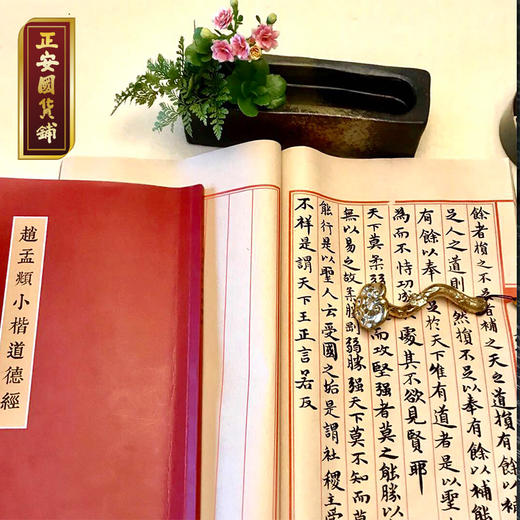 正安國貨鋪
趙孟頫小楷道德經
餘者損之不足者補之天之道損有餘以補
足人之道則然損不足以奉有餘
有餘以奉足於天下唯有道者是以聖
為而不恃功成處其不欲見賢耶
天下莫柔弱而攻堅強者莫之能勝以
無以易之故柔勝剛弱勝強天下莫不知而莫
能行是以聖人云受國之垢是謂社稷主受
不祥是謂天下王正言若反